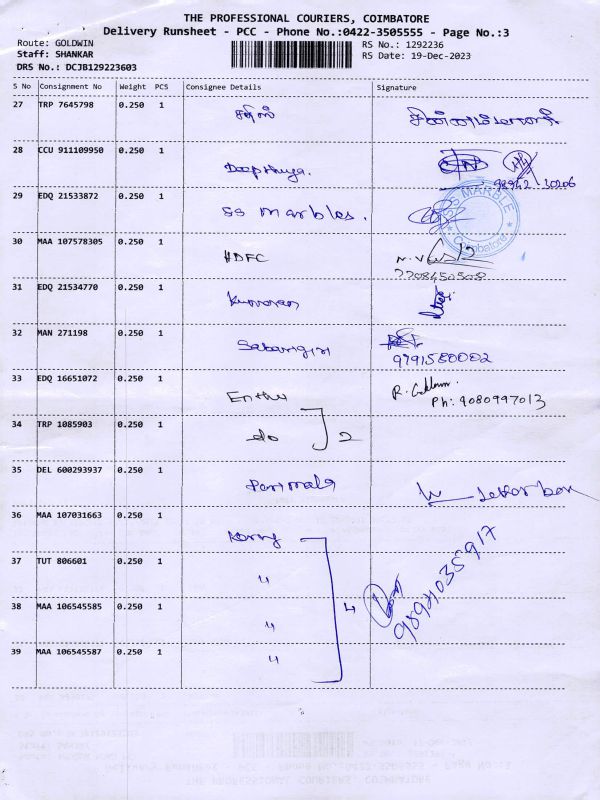 THE PROFESSIONAL COURIERS, COIMBATORE
Delivery Runsheet - PCC - Phone No.:0422-3505555 - Page No.:3
Route: GOLDWIN
Staff: SHANKAR
DRS No.: DCJB129223603
RS No.: 1292236
RS Date: 19-Dec-2023
S No Consignment No Weight PCS Consignee Details Signature
27 TRP 7645798 0.250 1
28 CCU 911109950 0.250 1
98942-30206
29 EDQ 21533872 0.250 1 SS Marbles.
SS MARBLE
Coimbatore
30 MAA 107578305 0.250 1 HDFC
7708450508
31 EDQ 21534770 0.250 1
32 MAN 271198 0.250 1 Sabarigiri
9791580002
33 EDQ 16651072 0.250 1 Enthu
Ph: 9080997013
34 TRP 1085903 0.250 1 do 2
35 DEL 600293937 0.250 1
36 MAA 107031663 0.250 1
37 TUT 806601 0.250 1 "
38 MAA 106545585 0.250 1 " 4
39 MAA 106545587 0.250 1 "